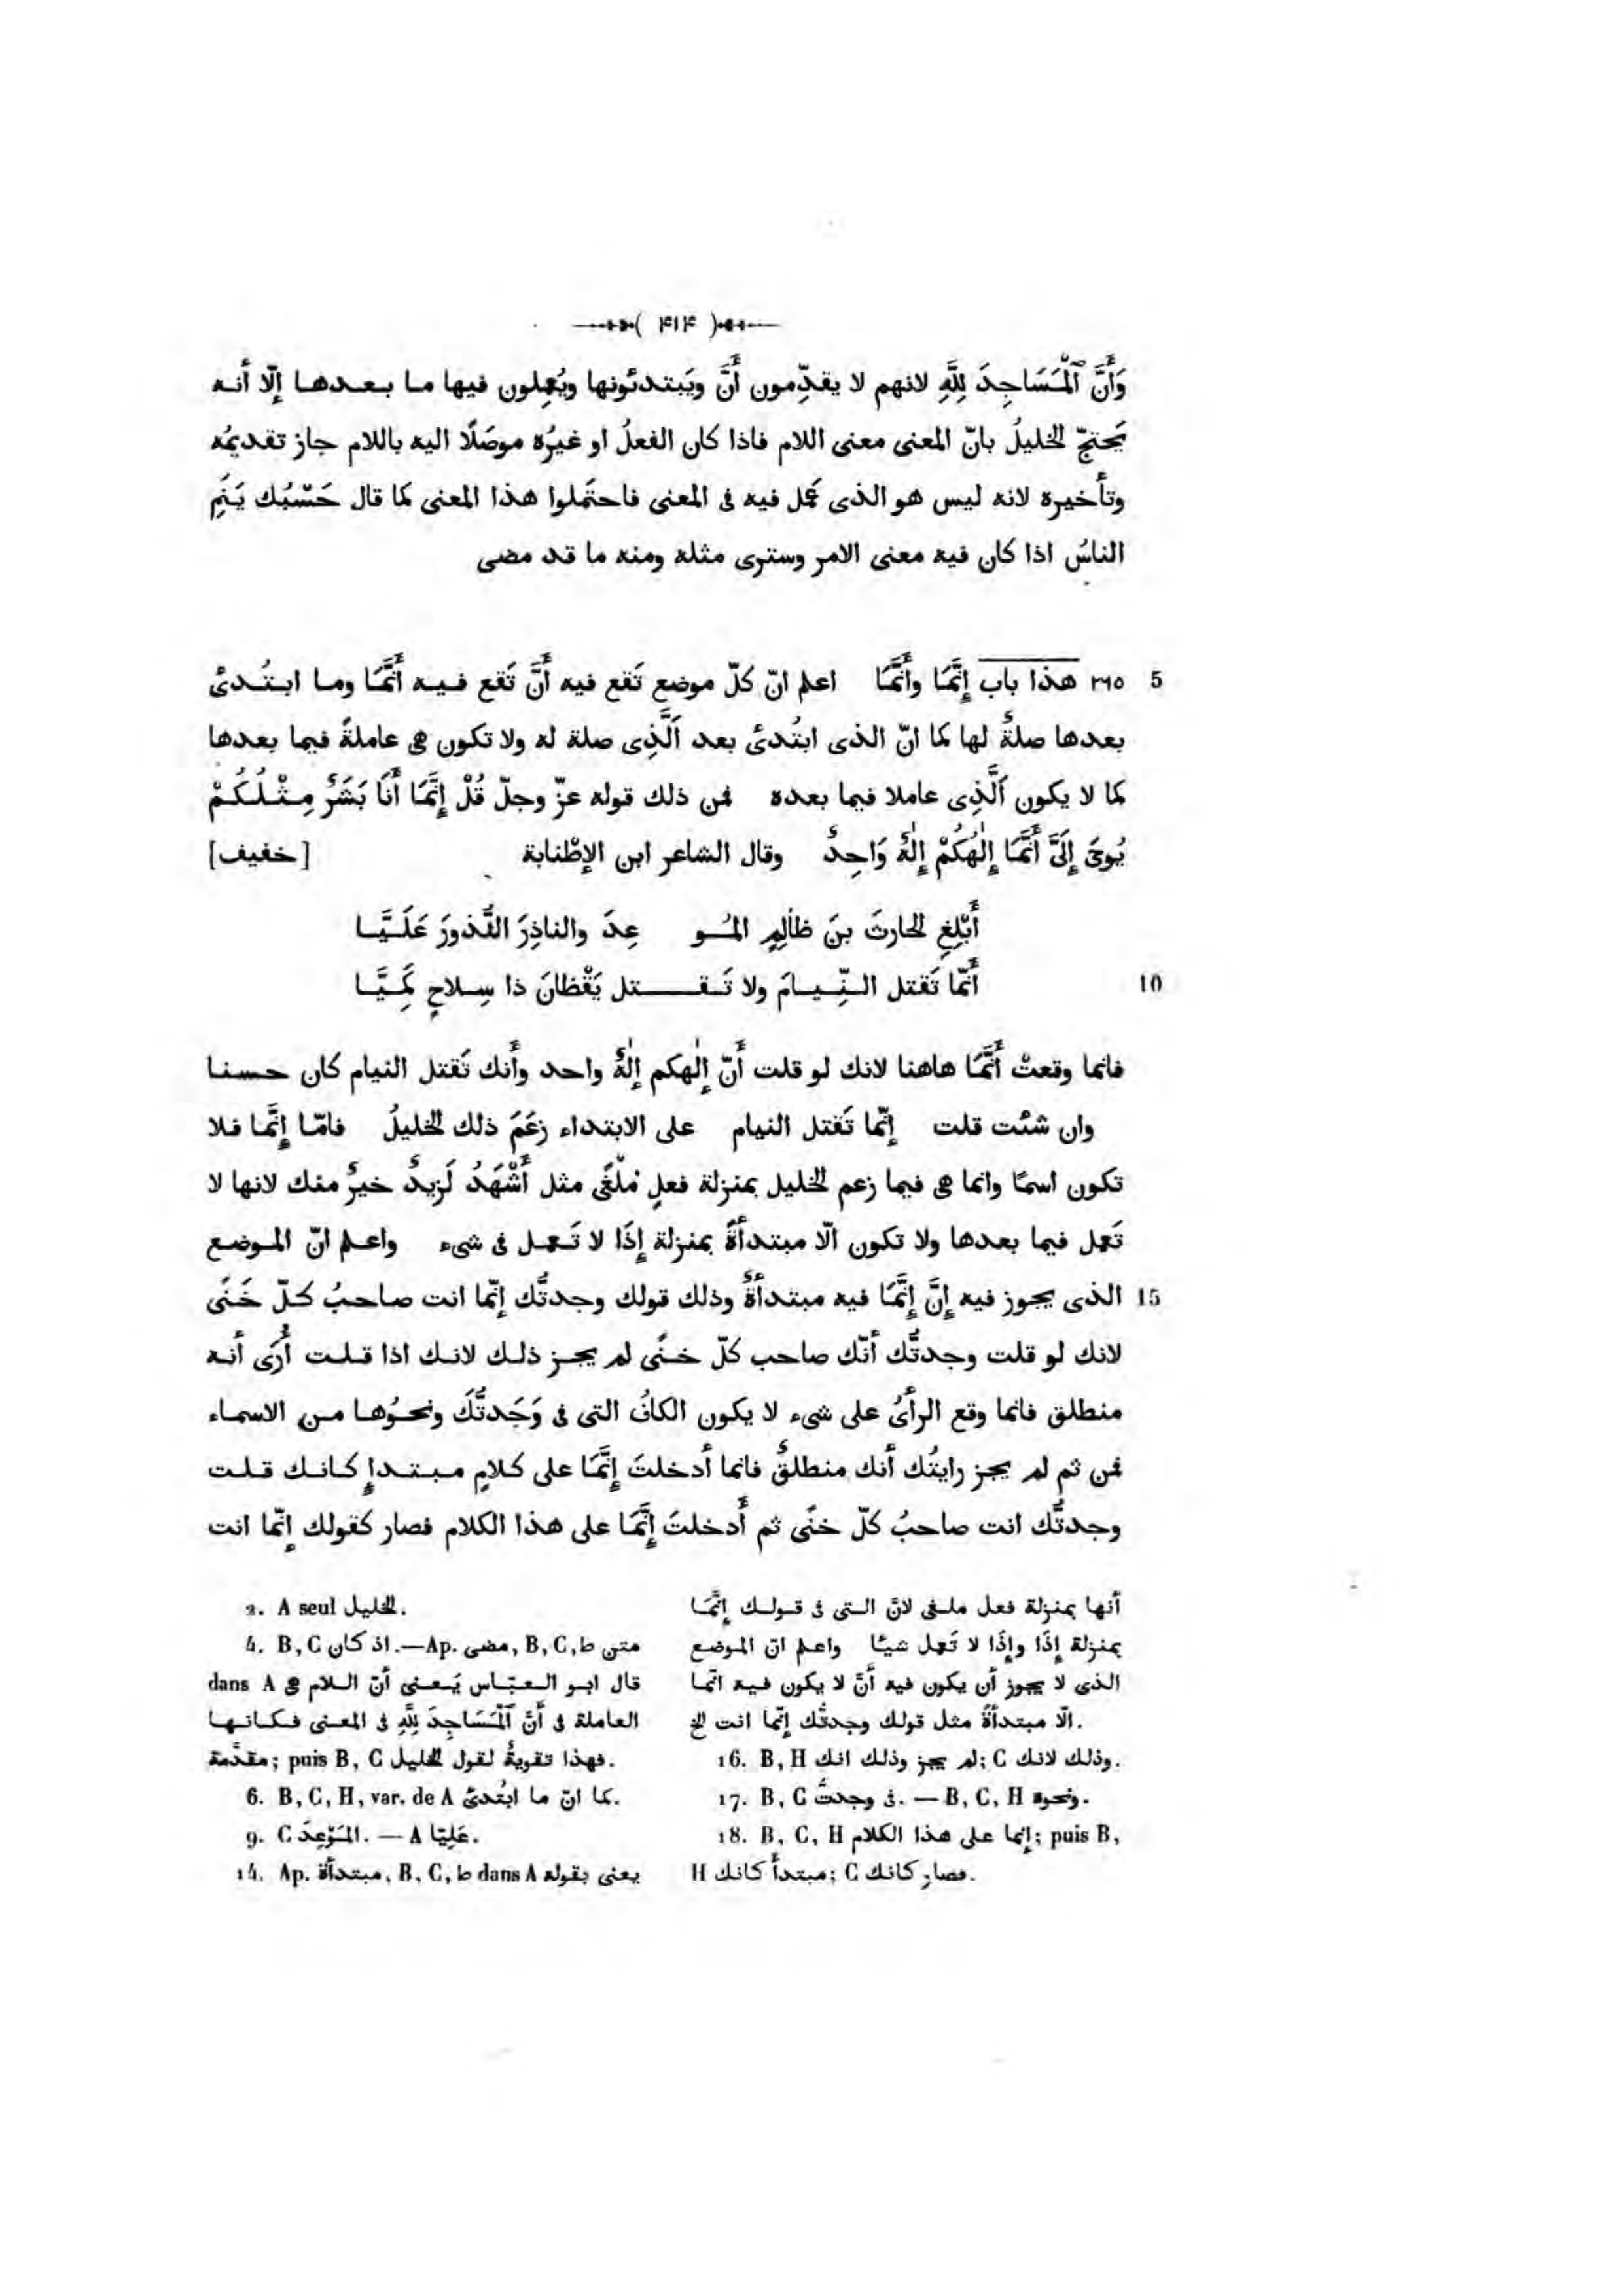 ( ۴۱۴ )
وَأَنَّ ٱلْمَسَاجِدَ لِلّٰهِ لانهم لا يقدِّمون أَنَّ ويَبتدئونها ويُعمِلون فيها ما بعدها إلّا أنه
يَحتجّ الخليلُ بانّ المعنى معنى اللام فاذا كان الفعلُ او غيرُه موصَلًا اليه باللام جاز تقديمُه
وتأخيره لانه ليس هو الذى عَمل فيه فى المعنى فاحتمَلوا هذا المعنى كما قال حَسْبُك يَنَمِ
الناسُ اذا كان فيه معنى الامر وسترى مثله ومنه ما قد مضى
5 ٢٦٥ هذا باب إِنَّمَا وأَنَّمَا اعلم انّ كلّ موضع تَقع فيه أَنَّ تَقع فيه أَنَّمَا وما ابتُدئ
بعدها صلةٌ لها كما انّ الذى ابتُدئ بعد ٱلَّذِى صلة له ولا تكون هى عاملةً فيما بعدها
كما لا يكون ٱلَّذِى عاملا فيما بعده فمن ذلك قوله عزّ وجلّ قُلْ إِنَّمَا أَنَا بَشَرٌ مِثْلُكُمْ
يُوحَى إِلَىَّ أَنَّمَا إِلٰهُكُمْ إِلٰهٌ وَاحِدٌ وقال الشاعر ابن الإطْنابة [خفيف]
أَبْلِغِ الحارثَ بنَ ظالِمٍ المُو عِدَ والناذِرَ النُّذورَ عَلَيَّا
10 أنّما تَقتل النِّيامَ ولا تَقتل يَقْظانَ ذا سِلاحٍ كَمِيَّا
فانما وقعتْ أَنَّمَا هاهنا لانك لو قلت أَنّ إلٰهكم إلٰهٌ واحد وأَنك تَقتل النيام كان حسنا
وان شئت قلت إنّما تَقتل النيام على الابتداء زعَمَ ذلك الخليلُ فامّا إِنَّمَا فلا
تكون اسمًا وانما هى فيما زعم الخليل بمنزلة فعلٍ مُلْغًى مثل أَشْهَدُ لَزيدٌ خيرٌ منك لانها لا
تَعمل فيما بعدها ولا تكون الّا مبتدأةً بمنزلة إِذًا لا تَعمل فى شىء واعلم انّ الموضع
15 الذى يجوز فيه إِنَّ إِنَّمَا فيه مبتدأةٌ وذلك قولك وجدتُّك إنّما انت صاحبُ كلّ خَنًى
لانك لو قلت وجدتُّك أنّك صاحب كلّ خنًى لم يجز ذلك لانك اذا قلت أُرَى أنه
منطلق فانما وقع الرأىُ على شىء لا يكون الكافُ التى فى وَجَدتُّكَ ونحوُها من الاسماء
فمن ثم لم يجز رايتُك أنك منطلقٌ فانما أدخلتَ إِنَّمَا على كلامٍ مبتدإٍ كانك قلت
وجدتُّك انت صاحبُ كلّ خنًى ثم أدخلتَ إِنَّمَا على هذا الكلام فصار كقولك إنّما انت
2. A seul الخليل.
4. B, C اذ كان.—Ap. مضى, B, C, ط متن
dans A قال ابو العبّاس يَعنى أنّ اللام هى
العاملة فى أَنَّ ٱلْمَسَاجِدَ لِلّٰهِ فى المعنى فكانها
مقدَّمة; puis B, C فهذا تقويةٌ لقول الخليل.
6. B, C, H, var. de A كما انّ ما ابتُدئ.
9. C المَوْعِدَ. — A عَلِيّا.
14. Ap. مبتدأة, B, C, ط dans A يعنى بقوله
أنها بمنزلة فعل ملغى لانّ التى فى قولك إِنَّمَا
بمنزلة إِذًا وإِذًا لا تَعمل شيئًا واعلم انّ الموضع
الذى لا يجوز أن يكون فيه أَنَّ لا يكون فيه انّما
الّا مبتدأةً مثل قولك وجدتُّك إنّما انت الخ.
16. B, H لم يجز وذلك انك; C وذلك لانك.
17. B, C فى وجدتُّ. — B, C, H ونحوه.
18. B, C, H إنما على هذا الكلام; puis B,
H مبتدأ كانك; C فصار كانك.